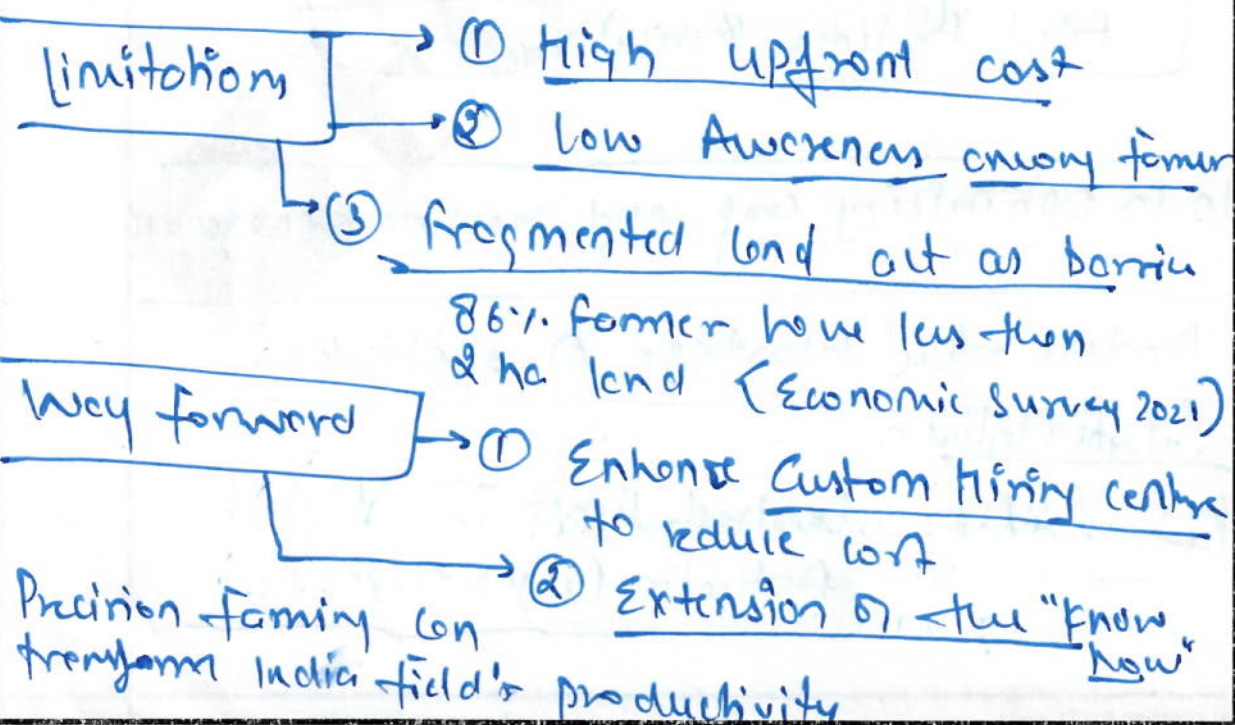 Limitations
① High upfront cost
② Low Awareness among farmer
③ fragmented land act as barrier
86% farmer have less than
2 ha land (Economic Survey 2021)
Way forward
① Enhance Custom Hiring centre
to reduce cost
② Extension of the "know
how"
Precision farming can
transform India field's productivity